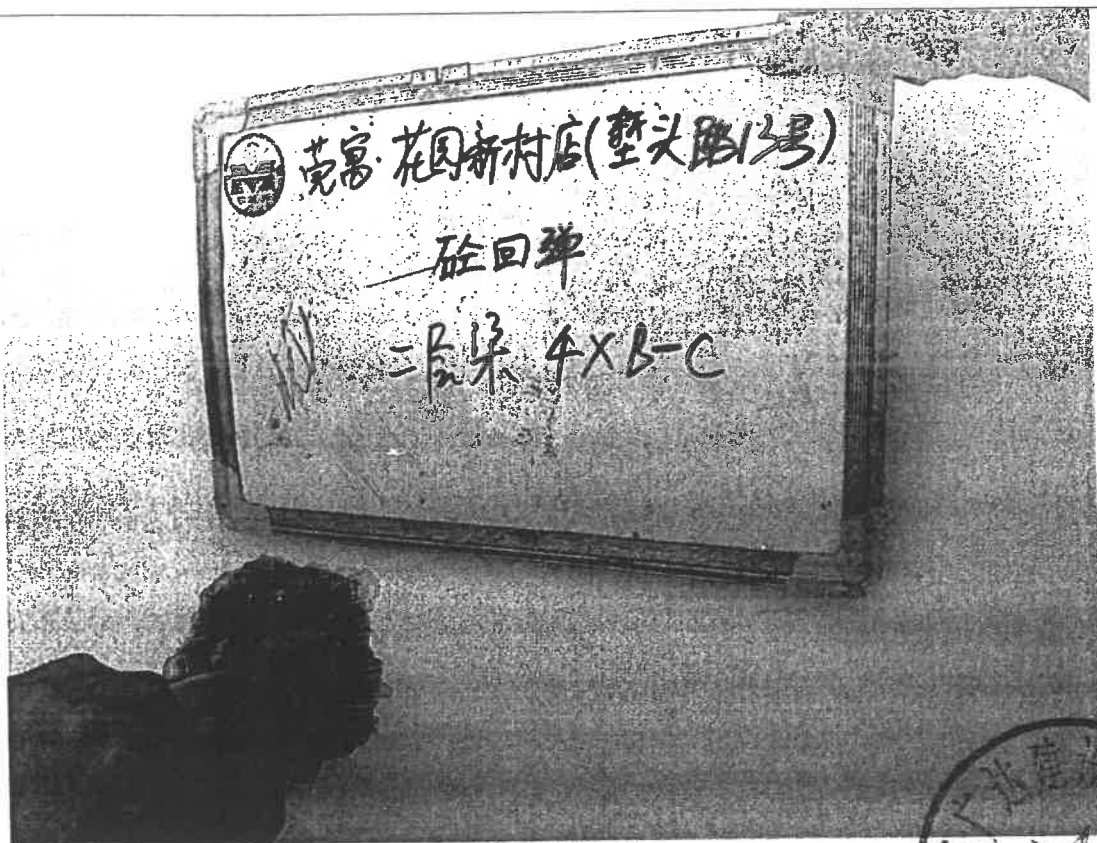 莞寓·花园新村店(堑头路13号)
砼回弹
二层梁 4×B-C